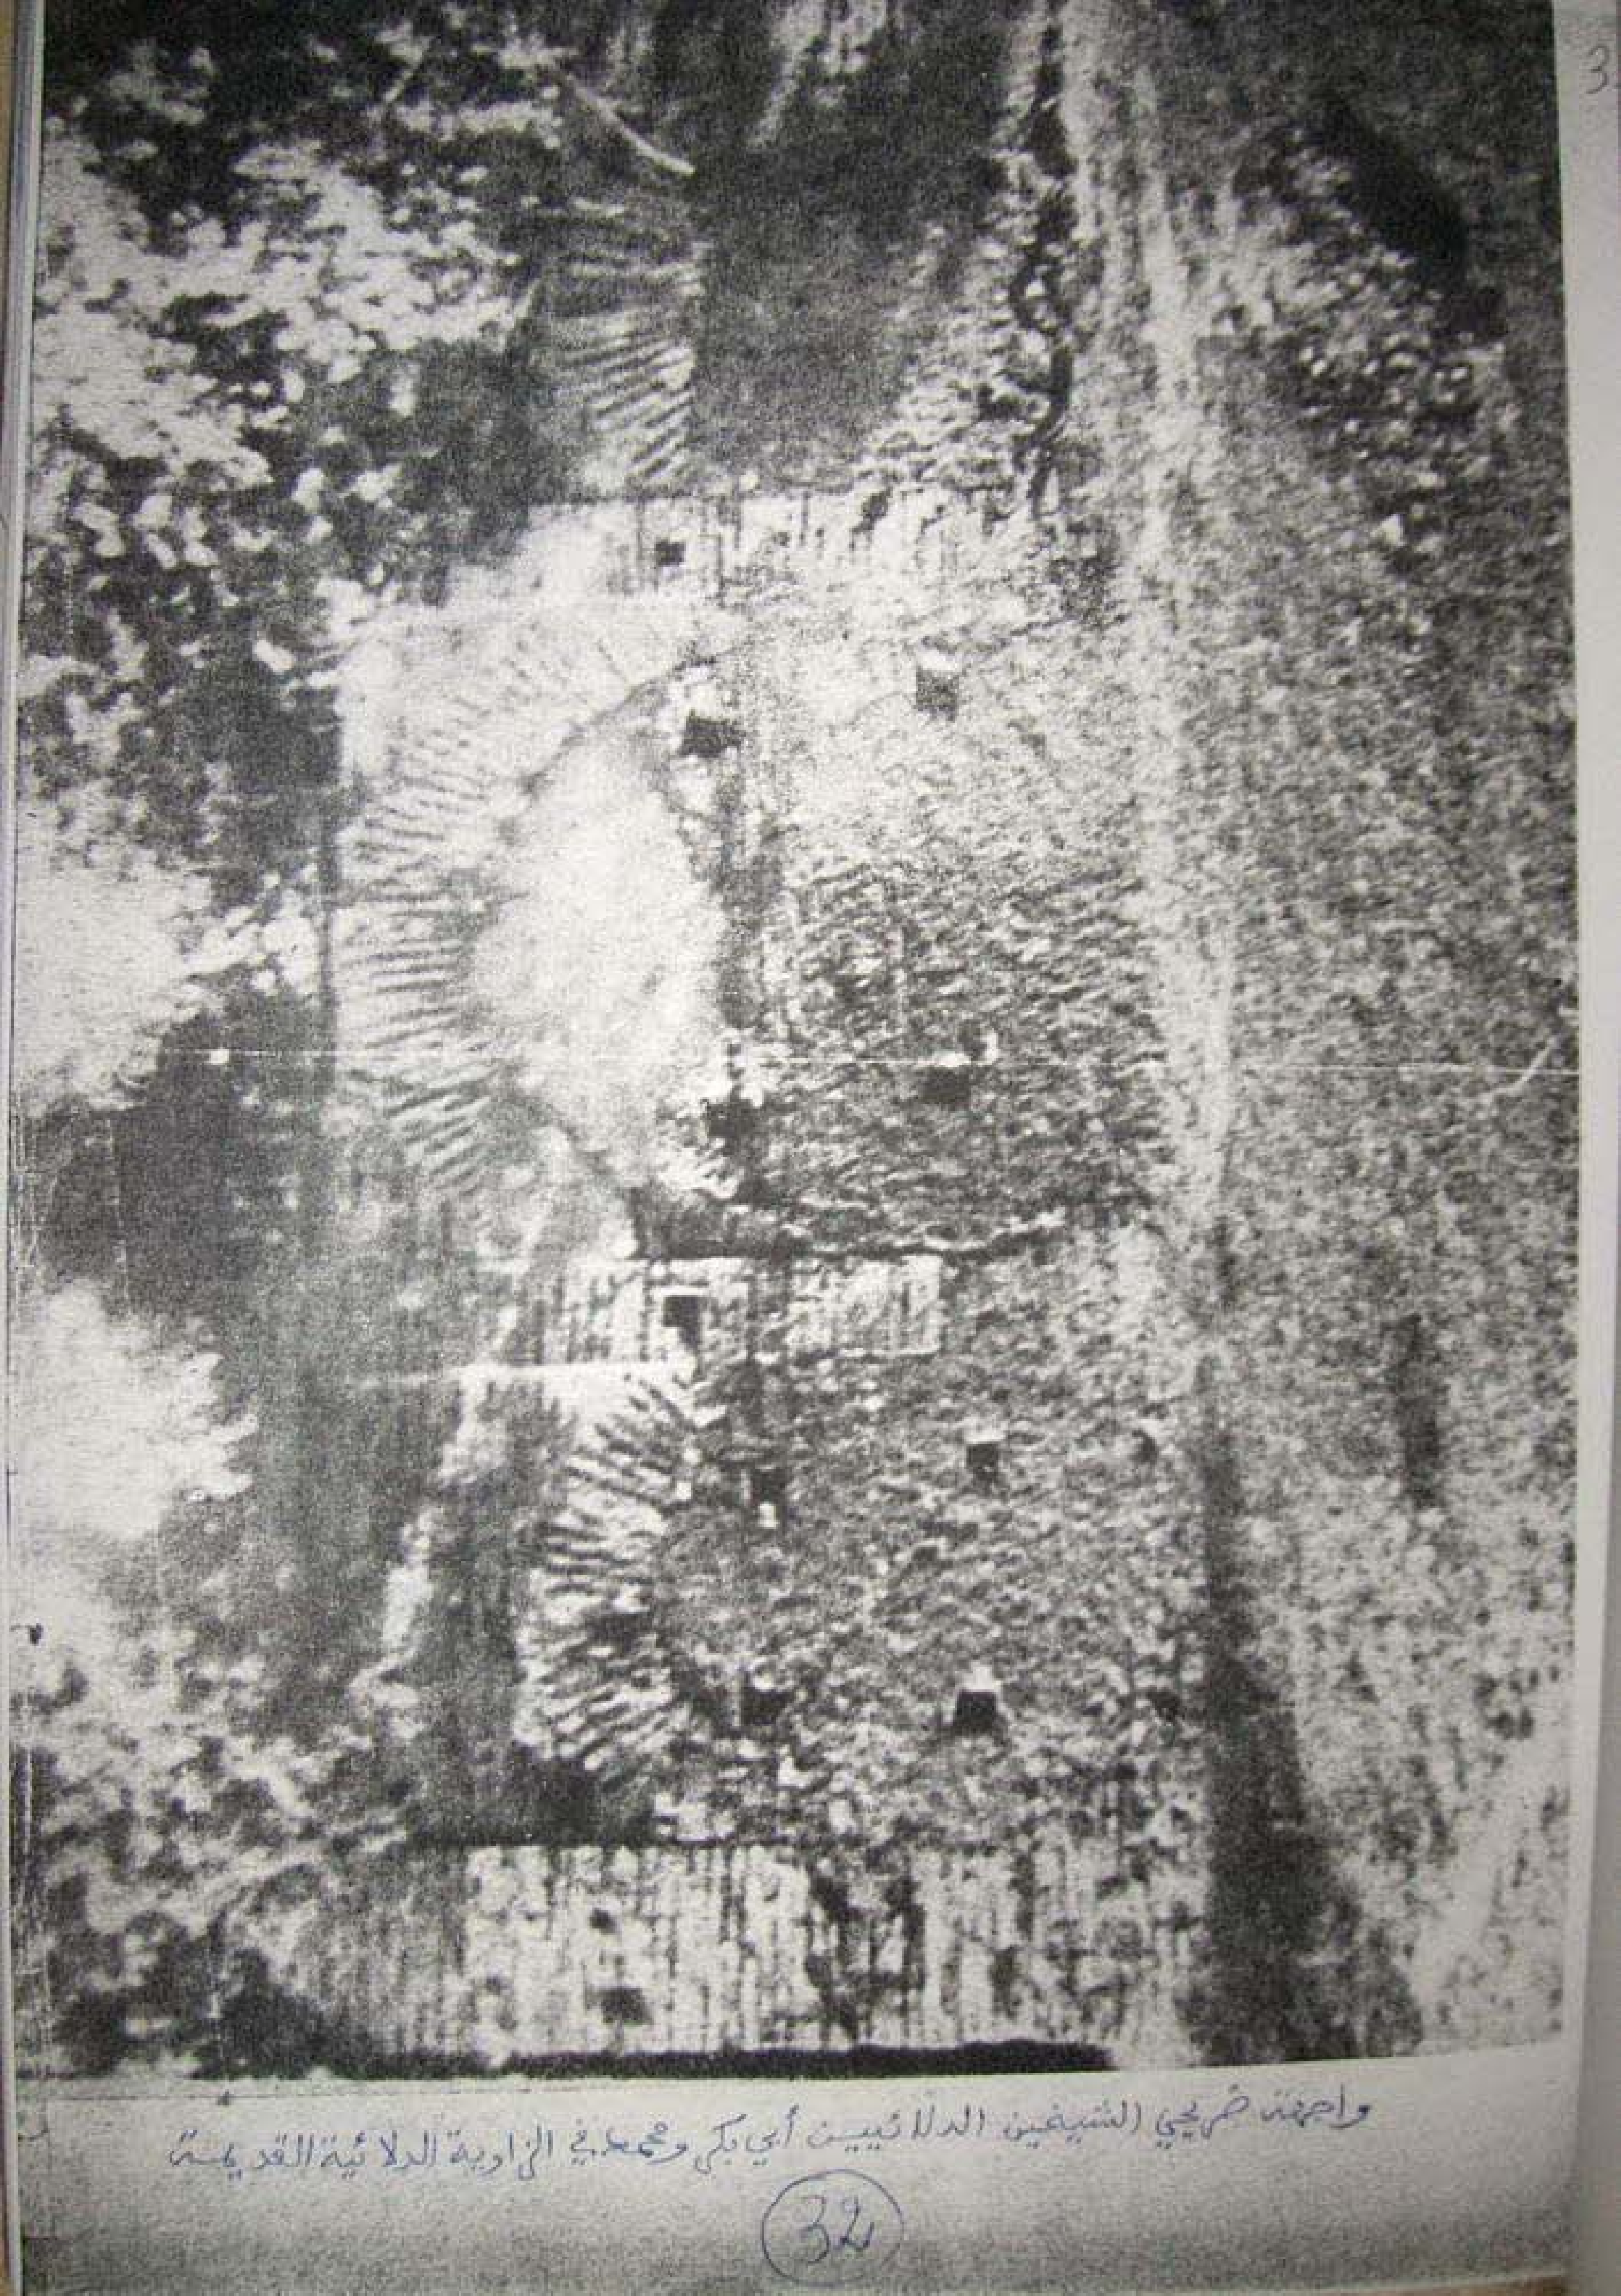 3
واجهة ضريحي الشيخين الدلائيين أبي بكر ومحمد في الزاوية الدلائية القديمة
32